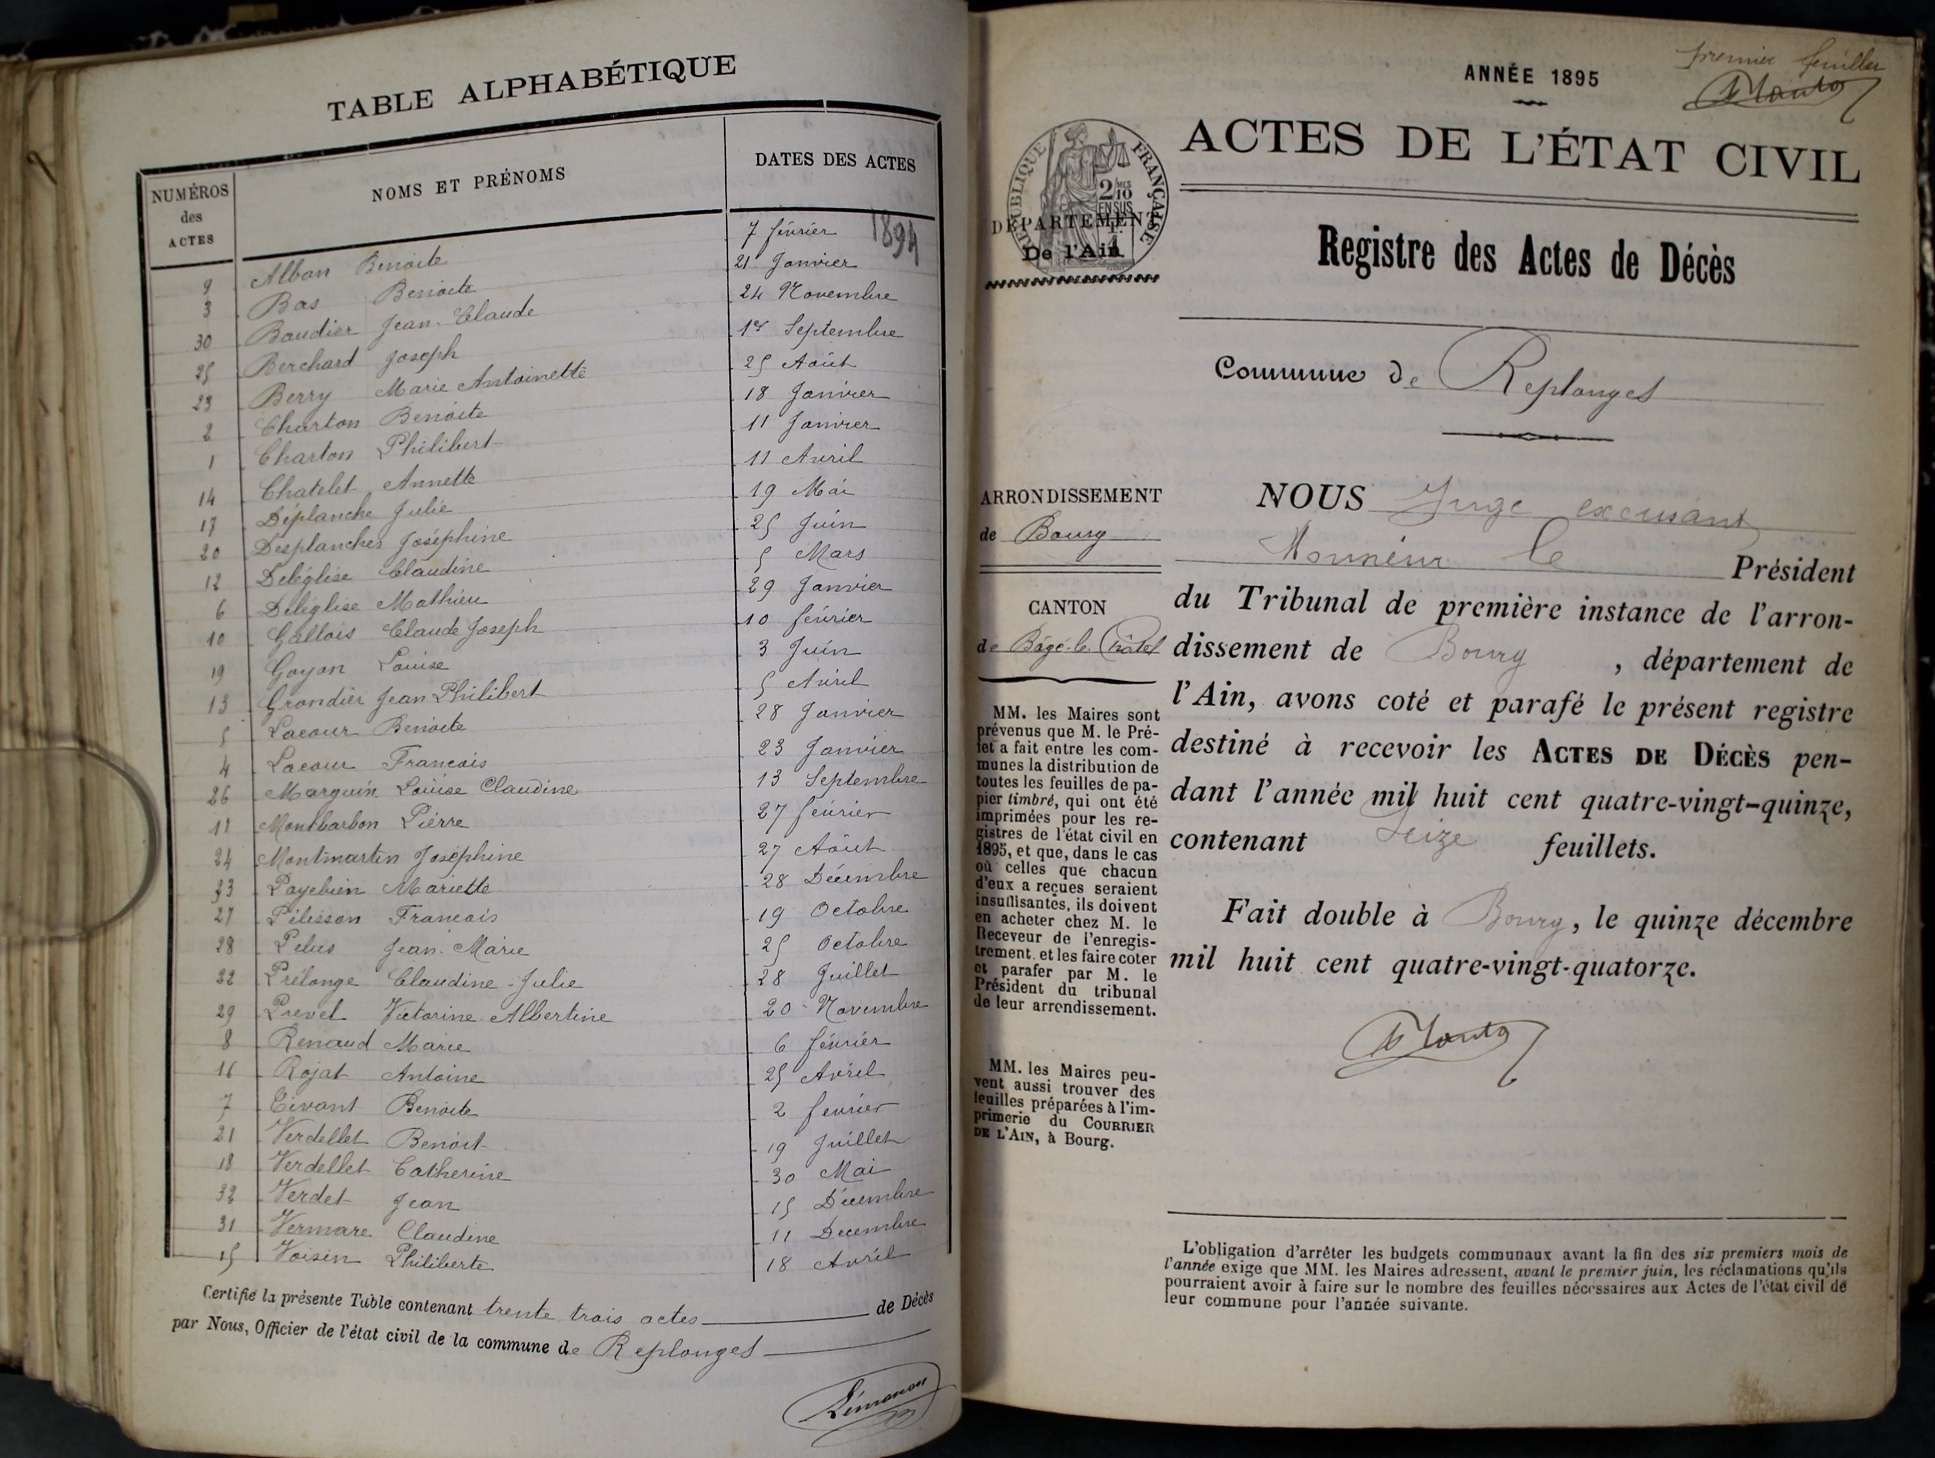 TABLE ALPHABÉTIQUE
NUMÉROS des ACTES NOMS ET PRÉNOMS DATES DES ACTES
1894
9 Alban Benoite 7 février
3 Bas Benoite 21 Janvier
30 Baudier Jean-Claude 24 Novembre
25 Berchard Joseph 1er Septembre
23 Berry Marie Antoinette 25 Août
2 Charton Benoite 18 Janvier
1 Charton Philibert 11 Janvier
14 Chatelet Annette 11 Avril
17 Déplanche Julie 19 Mai
20 Desplanches Joséphine 25 Juin
12 Deléglise Claudine 5 Mars
6 Deléglise Mathieu 29 Janvier
10 Gallois Claude Joseph 10 février
19 Goyon Louise 3 Juin
13 Grandier Jean Philibert 5 Avril
5 Lacour Benoite 28 Janvier
4 Lacour Francois 23 Janvier
26 Marguin Louise Claudine 13 Septembre
11 Montbarbon Pierre 27 février
24 Montmartin Joséphine 27 Août
33 Payebien Mariette 28 Décembre
27 Pélisson Francois 19 Octobre
28 Pelus Jean-Marie 25 Octobre
22 Prélonge Claudine-Julie 28 Juillet
29 Prevel Victorine Albertine 20 Novembre
8 Renaud Marie 6 février
16 Rojat Antoine 25 Avril
7 Benoite 2 février
21 Verdellet Benoit 19 Juillet
18 Verdellet Catherine 30 Mai
32 Verdet Jean 15 Décembre
31 Vermare Claudine 11 Decembre
15 Voisin Philiberte 18 Avril
Certifié la présente Table contenant trente trois actes de Décès
par Nous, Officier de l'état civil de la commune de Replonges
premier feuillet
ANNÉE 1895
ACTES DE L'ÉTAT CIVIL
RÉPUBLIQUE FRANÇAISE
2 MES
10
EN SUS
DÉPARTEMENT
De l'Ain
Registre des Actes de Décès
Commune de Replonges
ARRONDISSEMENT
de Bourg
CANTON
de Bâgé-le-Châtel
MM. les Maires sont
prévenus que M. le Pré-
fet a fait entre les com-
munes la distribution de
toutes les feuilles de pa-
pier timbré, qui ont été
imprimées pour les re-
gistres de l'état civil en
1895, et que, dans le cas
où celles que chacun
d'eux a reçues seraient
insuffisantes, ils doivent
en acheter chez M. le
Receveur de l'enregis-
trement et les faire coter
et parafer par M. le
Président du tribunal
de leur arrondissement.
MM. les Maires peu-
vent aussi trouver des
feuilles préparées à l'im-
primerie du COURRIER
DE L'AIN, à Bourg.
NOUS Juge excusant
Monsieur le Président
du Tribunal de première instance de l'arron-
dissement de Bourg, département de
l'Ain, avons coté et parafé le présent registre
destiné à recevoir les ACTES DE DÉCÈS pen-
dant l'année mil huit cent quatre-vingt-quinze,
contenant Seize feuillets.
Fait double à Bourg, le quinze décembre
mil huit cent quatre-vingt-quatorze.
L'obligation d'arrêter les budgets communaux avant la fin des six premiers mois de
l'année exige que MM. les Maires adressent, avant le premier juin, les réclamations qu'ils
pourraient avoir à faire sur le nombre des feuilles nécessaires aux Actes de l'état civil de
leur commune pour l'année suivante.